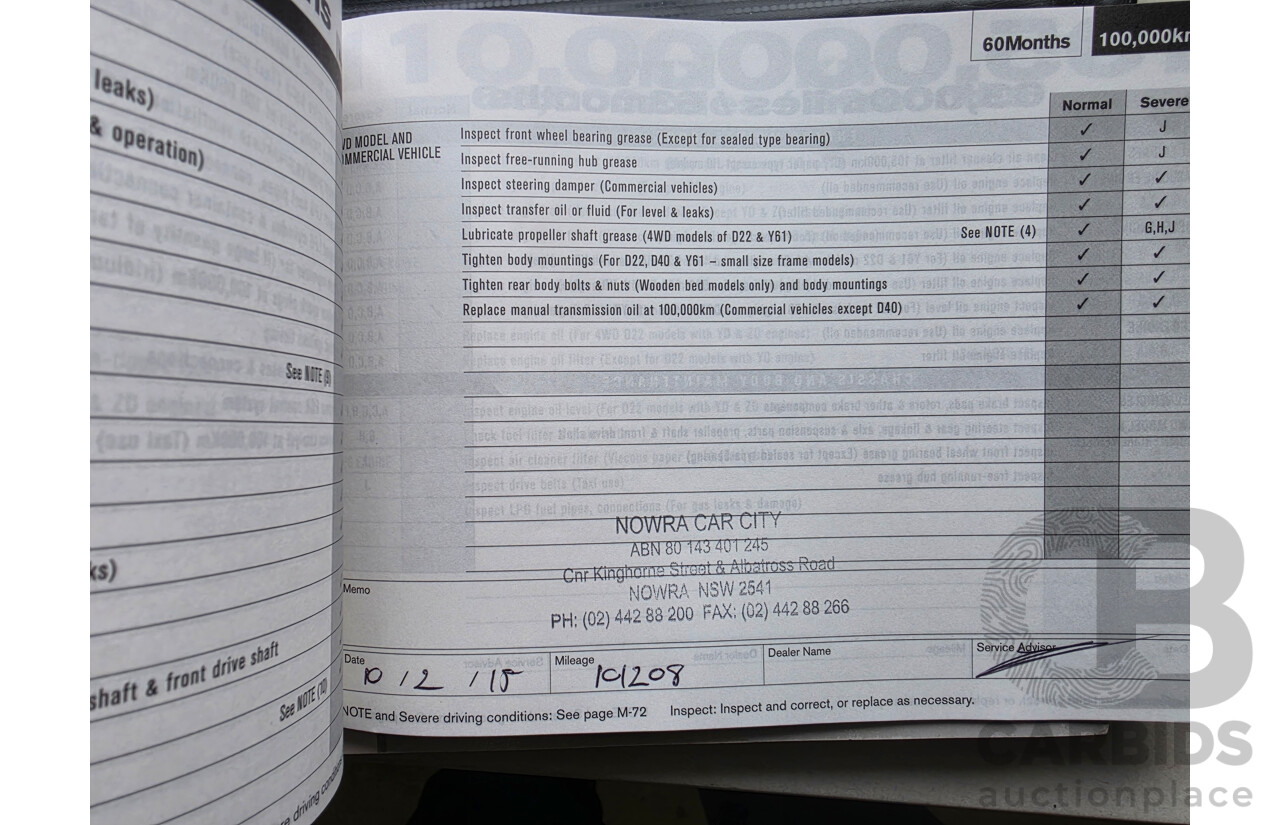 leaks)
& operation)
See NOTE (9)
ks)
shaft & front drive shaft
See NOTE (10)
60Months 100,000km
Normal Severe
WD MODEL AND
MMERCIAL VEHICLE
Inspect front wheel bearing grease (Except for sealed type bearing) ✓ J
Inspect free-running hub grease ✓ J
Inspect steering damper (Commercial vehicles) ✓ ✓
Inspect transfer oil or fluid (For level & leaks) ✓ ✓
Lubricate propeller shaft grease (4WD models of D22 & Y61) See NOTE (4) ✓ G,H,J
Tighten body mountings (For D22, D40 & Y61 – small size frame models) ✓ ✓
Tighten rear body bolts & nuts (Wooden bed models only) and body mountings ✓ ✓
Replace manual transmission oil at 100,000km (Commercial vehicles except D40) ✓ ✓
NOWRA CAR CITY
ABN 80 143 401 245
Cnr Kinghorne Street & Albatross Road
NOWRA NSW 2541
PH: (02) 442 88 200 FAX: (02) 442 88 266
Memo
Date 10/2/15 Mileage 101208 Dealer Name Service Advisor
NOTE and Severe driving conditions: See page M-72 Inspect: Inspect and correct, or replace as necessary.
CB
CARBIDS
auctionplace